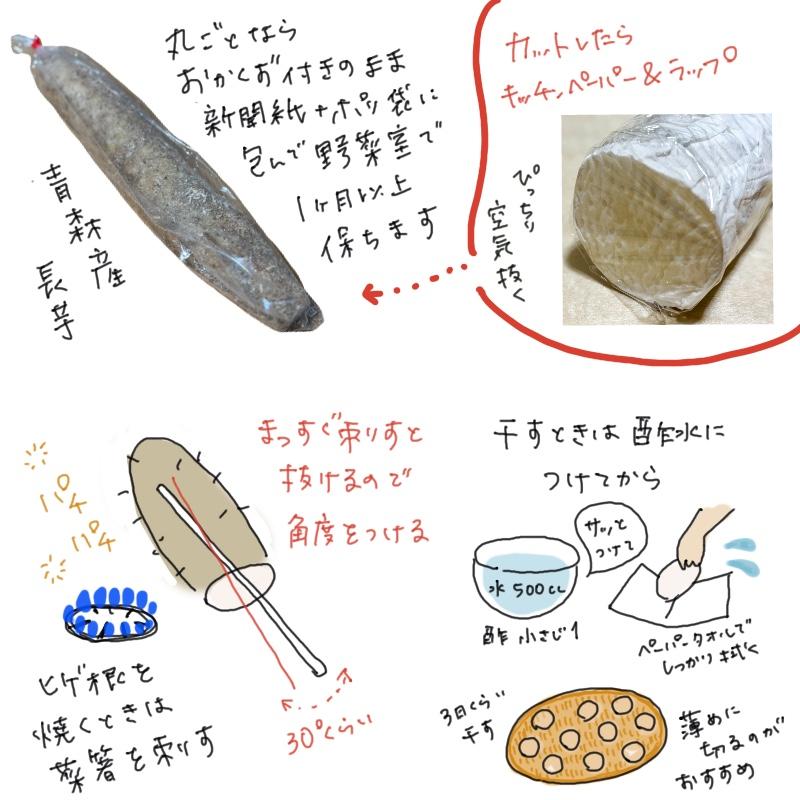 丸ごとなら
おがくず付きのまま
新聞紙+ポリ袋に
包んで野菜室で
1ヶ月以上
保ちます
青森産
長芋
カットしたら
キッチンペーパー&ラップ
ぴっちり
空気抜く
まっすぐ刺すと
抜けるので
角度をつける
パチ
パチ
30°くらい
ヒゲ根を
焼くときは
菜箸を刺す
干すときは酢水に
つけてから
サッと
つけて
水500cc
酢 小さじ1
ペーパータオルで
しっかり拭く
3日くらい
干す
薄めに
切るのが
おすすめ